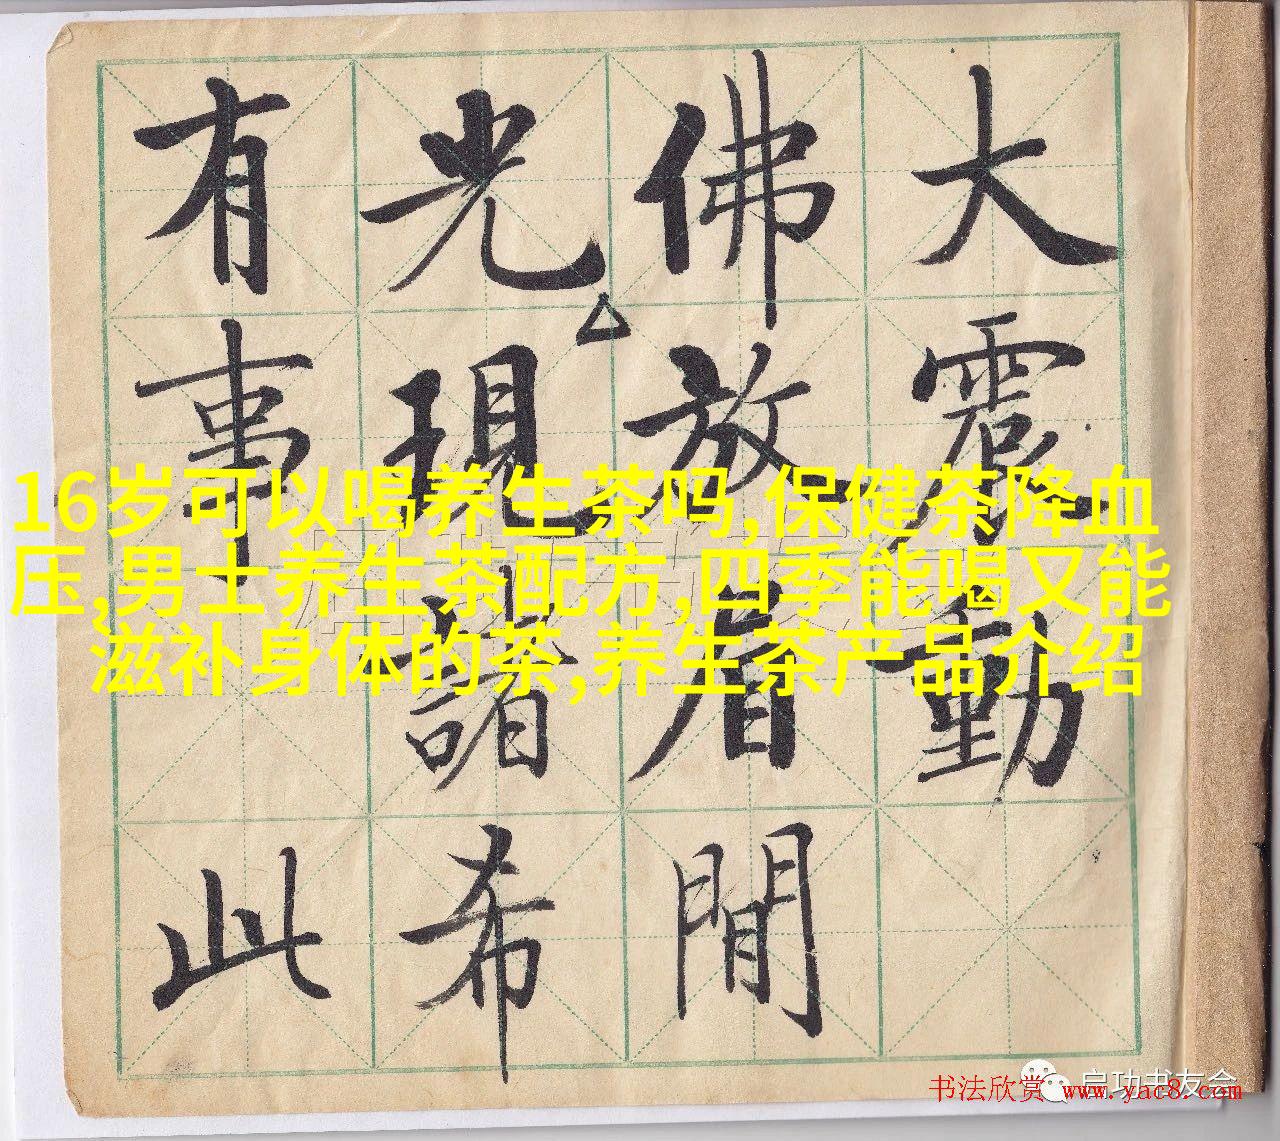 大震動
佛放眉間
光現諸希
有事此
16岁可以喝养生茶吗,保健茶降血
压,男士养生茶配方,四季能喝又能
滋补身体的茶,养生茶产品介绍
启功书友会
书法欣赏 www.yac8.com